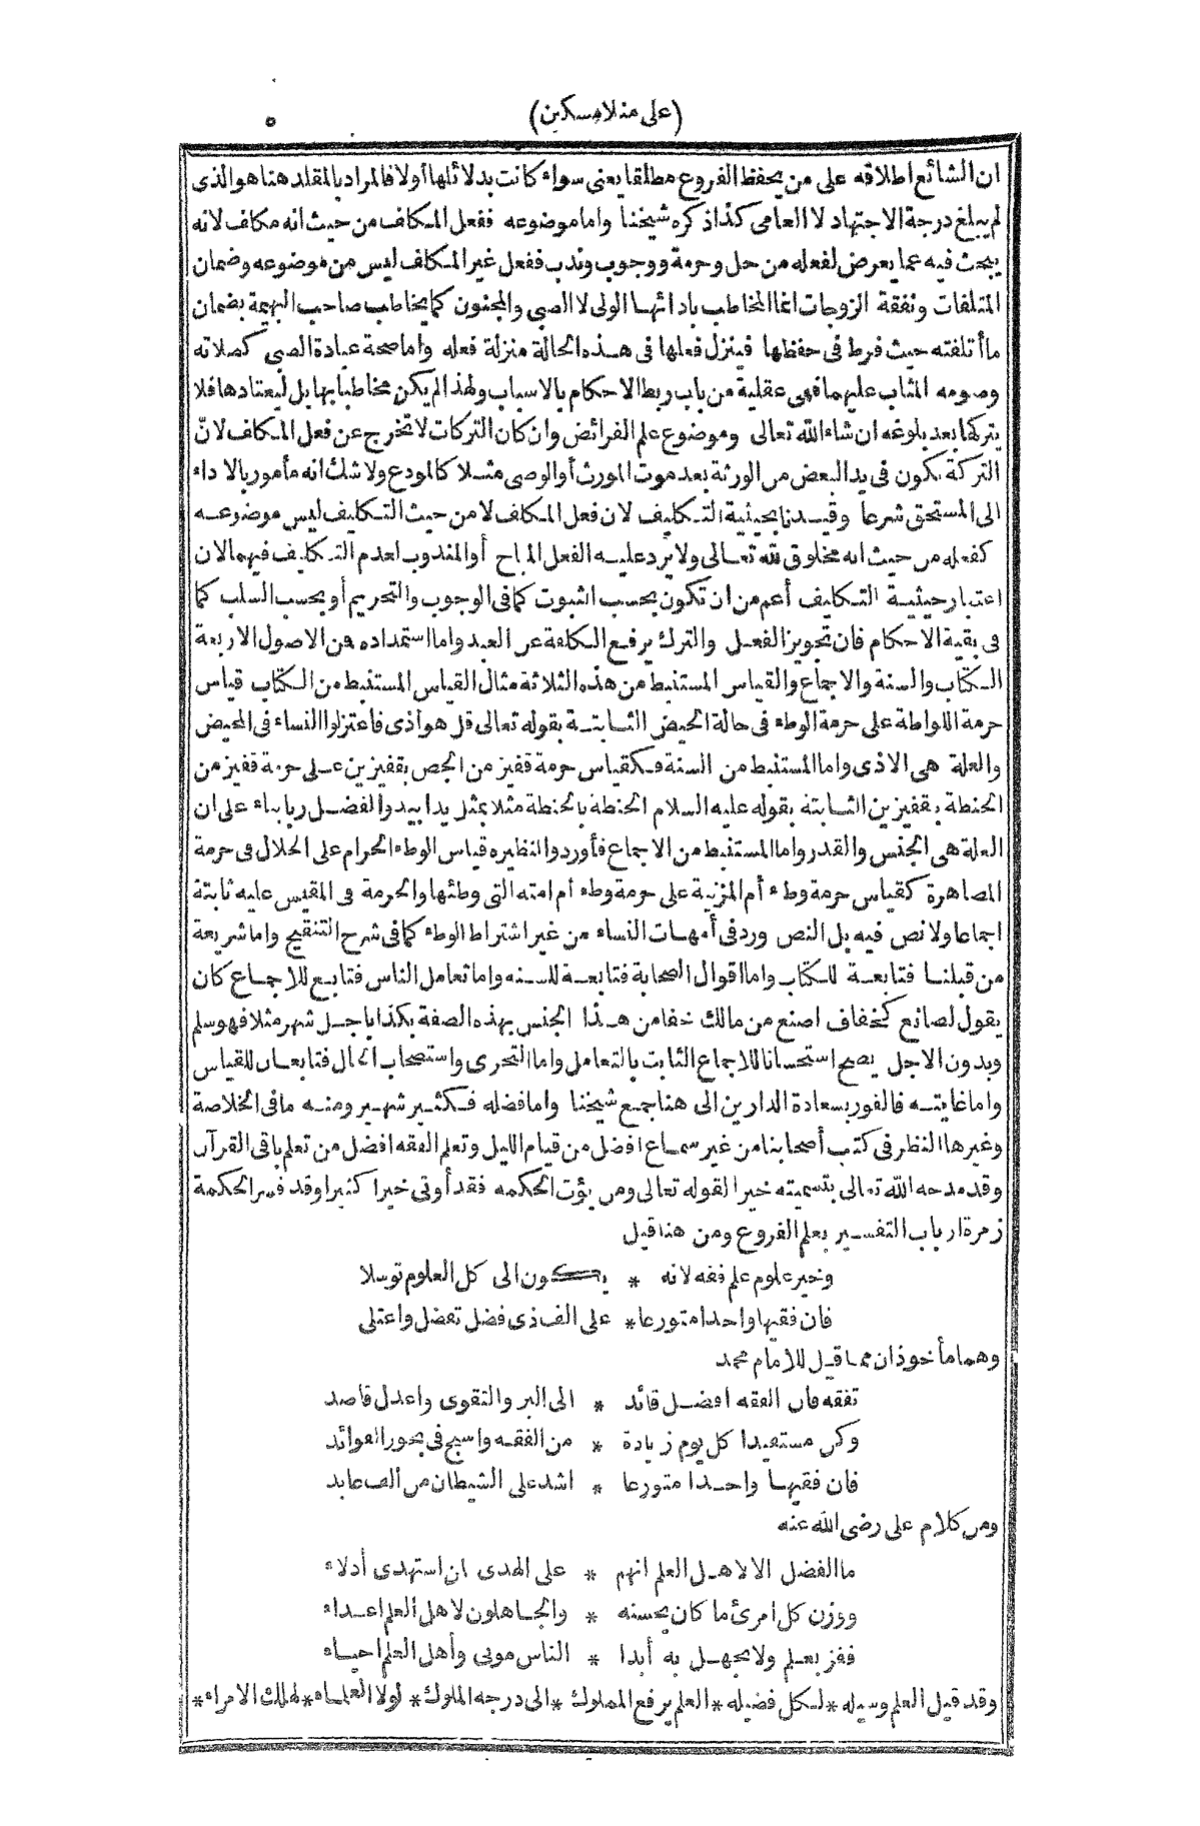 (على منلا مسكين)
٥
ان الشائع اطلاقه على من يحفظ الفروع مطلقا يعنى سواء كانت بدلائلها أولا فالمراد بالمقلد هنا هو الذى
لم يبلغ درجة الاجتهاد لا العامى كذا ذكره شيخنا واما موضوعه ففعل المكلف من حيث انه مكلف لانه
يبحث فيه عما يعرض لفعله من حل وحرمة ووجوب وندب ففعل غير المكلف ليس من موضوعه وضمان
المتلفات ونفقة الزوجات انما المخاطب بادائها الولى لا الصبى والمجنون كما يخاطب صاحب البهيمة بضمان
ما أتلفته حيث فرط فى حفظها فينزل فعلها فى هذه الحالة منزلة فعله واما صحة عبادة الصبى كصلاته
وصومه المثاب عليهما فهى عقلية من باب ربط الاحكام بالاسباب ولهذا لم يكن مخاطبا بها بل ليعتادها فلا
يتركها بعد بلوغه ان شاء الله تعالى وموضوع علم الفرائض وان كان التركات لا تخرج عن فعل المكلف لانّ
التركة تكون فى يد البعض من الورثة بعد موت المورث أو الوصى مثلا كالمودع ولا شك انه مأمور بالاداء
الى المستحق شرعا وقيدنا بحيثية التكليف لان فعل المكلف لا من حيث التكليف ليس موضوعه
كفعله من حيث انه مخلوق لله تعالى ولا يرد عليه الفعل المباح أو المندوب لعدم التكليف فيهما لان
اعتبار حيثية التكليف أعم من ان تكون بحسب الثبوت كما فى الوجوب والتحريم أو بحسب السلب كما
فى بقية الاحكام فان تجويز الفعل والترك يرفع الكلفة عن العبد واما استمداده فن الاصول الاربعة
الكتاب والسنة والاجماع والقياس المستنبط من هذه الثلاثة مثال القياس المستنبط من الكتاب قياس
حرمة اللواطة على حرمة الوطء فى حالة الحيض الثابتة بقوله تعالى قل هو اذى فاعتزلوا النساء فى المحيض
والعلة هى الاذى واما المستنبط من السنة فكقياس حرمة قفيز من الجص بقفيزين على حرمة قفيز من
الحنطة بقفيزين الثابتة بقوله عليه السلام الحنطة بالحنطة مثلا بمثل يدا بيد والفضل ربا بناء على ان
العلة هى الجنس والقدر واما المستنبط من الاجماع فأوردوا لنظيره قياس الوطء الحرام على الحلال فى حرمة
المصاهرة كقياس حرمة وطء أم المزنية على حرمة وطء أم امته التى وطئها والحرمة فى المقيس عليه ثابتة
اجماعا ولا نص فيه بل النص ورد فى أمهات النساء من غير اشتراط الوطء كما فى شرح التنقيح واما شريعة
من قبلنا فتابعة للكتاب واما اقوال الصحابة فتابعة للسنه واما تعامل الناس فتابع للاجماع كان
يقول لصانع كخفاف اصنع من مالك خفا من هذا الجنس بهذه الصفة بكذا باجل شهر مثلا فهو سلم
وبدون الاجل يصح استحسانا للاجماع الثابت بالتعامل واما التحرى واستصحاب الحال فتابعان للقياس
واما غايته فالفوز بسعادة الدارين الى هنا جمع شيخنا واما فضله فكثير شهير ومنه ما فى الخلاصة
وغيرها النظر فى كتب أصحابنا من غير سماع افضل من قيام الليل وتعلم الفقه افضل من تعلم باقى القرآن
وقد مدحه الله تعالى بتسميته خيرا لقوله تعالى ومن يؤت الحكمه فقد أوتى خيرا كثيرا وقد فسر الحكمة
زمرة ارباب التفسير بعلم الفروع ومن هنا قيل
وخير علوم علم فقه لانه * يكون الى كل العلوم توسلا
فان فقيها واحدا متورعا * على الف ذى فضل تفضل واعتلى
وهما مأخوذان مما قيل للامام محمد
تفقه فان الفقه افضل قائد * الى البر والتقوى واعدل قاصد
وكن مستفيدا كل يوم زيادة * من الفقه واسبح فى بحور الفوائد
فان فقيها واحدا متورعا * اشد على الشيطان من ألف عابد
ومن كلام على رضى الله عنه
ما الفضل الا لاهل العلم انهم * على الهدى لمن استهدى أدلاء
ووزن كل امرئ ما كان يحسنه * والجاهلون لاهل العلم اعداء
ففز بعلم ولا تجهل به أبدا * الناس موتى وأهل العلم احياء
وقد قيل العلم وسيله * لكل فضيله * العلم يرفع المملوك * الى درجه الملوك * لولا العلماء * لهلك الامراء *